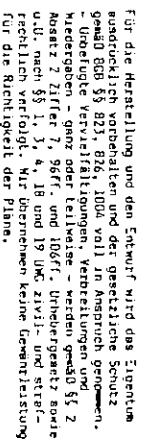 für die Herstellung und den Entwurf wird das Eigentum
ausdrücklich vorbehalten und der gesetzliche Schutz
gemäß BGB §§ 823, 826, 1004 voll in Anspruch genommen.
- Unbefugte Vervielfältigungen, Verbreitungen und
Wiedergaben - ganz oder teilweise - werden gemäß §§ 2
Absatz 2 Ziffer 7, 96ff. und 106ff. Urhebergesetz sowie
u.U. nach §§ 1, 3, 4, 18 und 19 UWG zivil- und straf-
rechtlich verfolgt. Wir übernehmen keine Gewährleistung
für die Richtigkeit der Pläne.